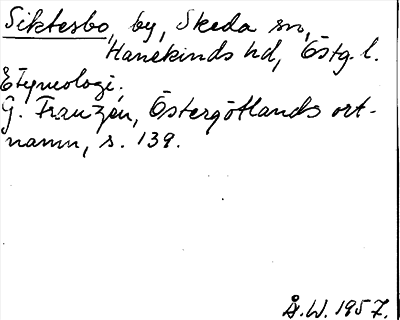 Siktesbo, by, Skeda sn,
Hanekinds hd, Östg. l.
Etymologi.
G. Franzén, Östergötlands ort-
namn, s. 139.
Å.W. 1957.